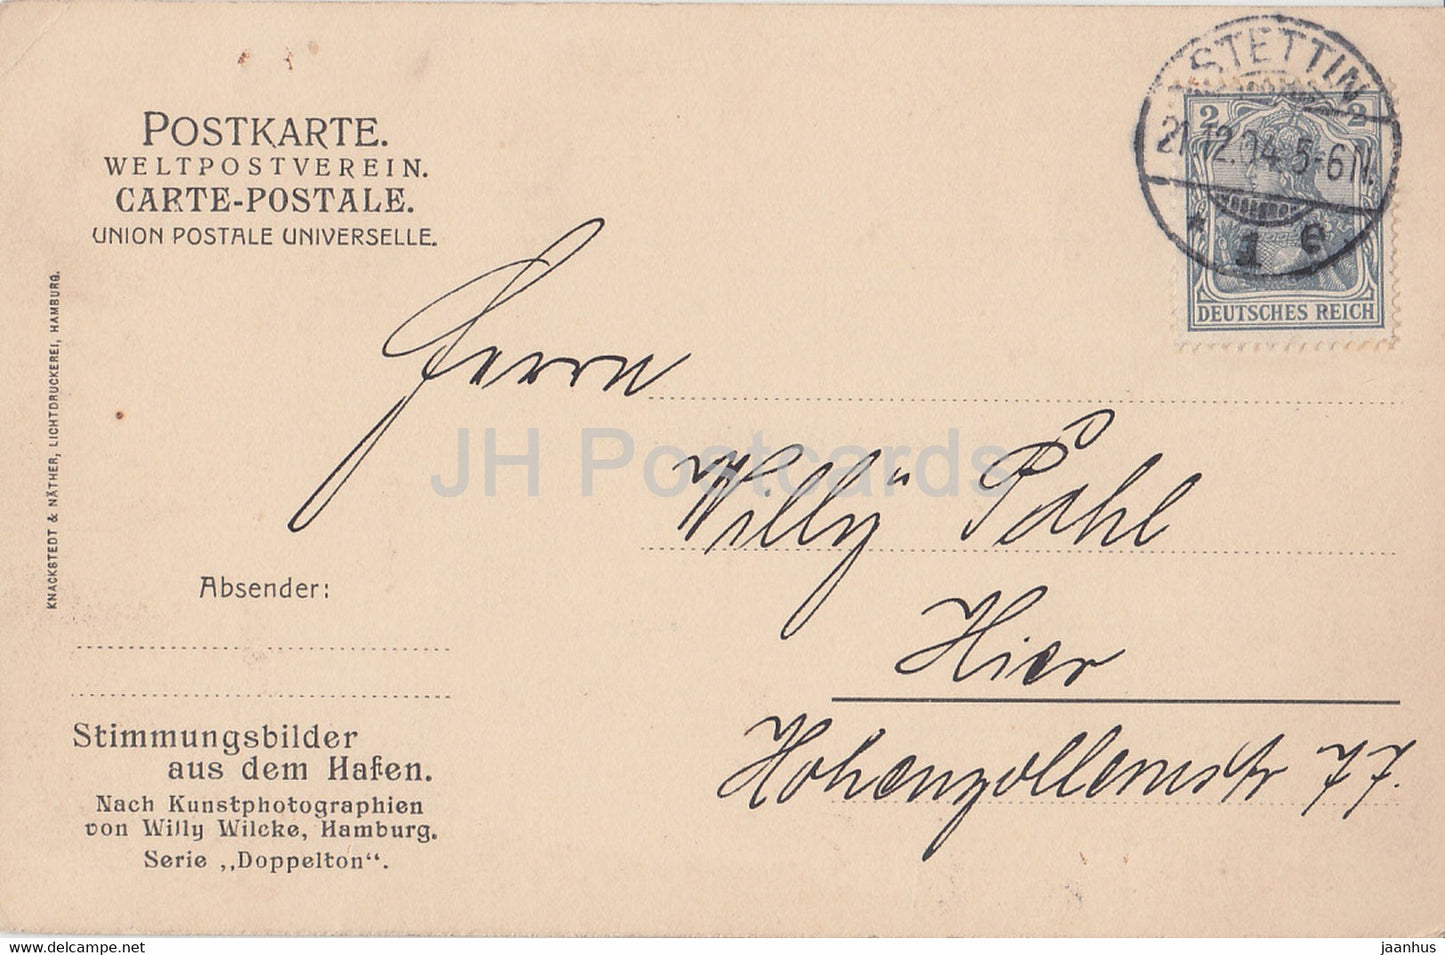 POSTKARTE.
WELTPOSTVEREIN.
CARTE-POSTALE.
UNION POSTALE UNIVERSELLE.
STETTIN
21.12.04.5-6N.
* 1 e
2 2
DEUTSCHES REICH
KNACKSTEDT & NÄTHER, LICHTDRUCKEREI, HAMBURG.
Herrn
JH Postcards
Willy Pahl
Hier
Hohenzollernstr 77.
Absender:
Stimmungsbilder
aus dem Hafen.
Nach Kunstphotographien
von Willy Wilcke, Hamburg.
Serie „Doppelton“.
https://www.jhpostcards.com
jaanhus